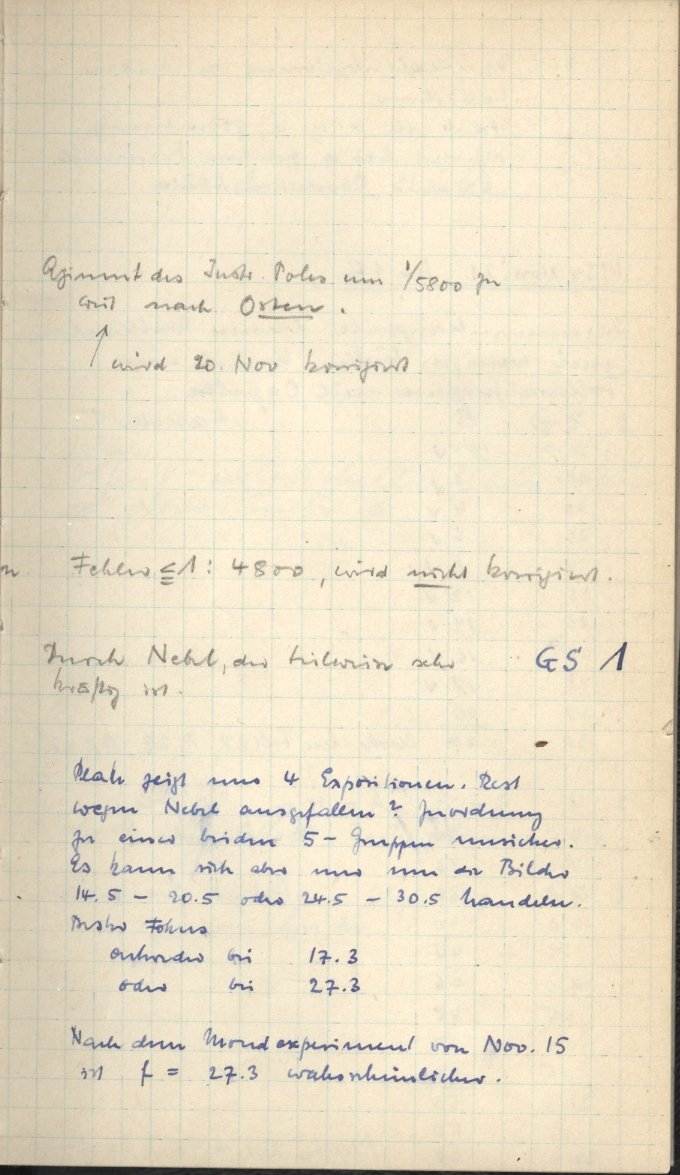 Azimut des Instr. Poles um 1/5800 zu
weit nach Osten.
↑
wird 20. Nov korrigiert
Fehler ≦ 1 : 4800, wird nicht korrigiert.
Durch Nebel, der teilweise sehr
kräftig ist.
GS 1
Platte zeigt nur 4 Expositionen. Rest
wegen Nebel ausgefallen? Zuordnung
zu einer beiden 5-Gruppen unsicher.
Es kann sich aber nur um die Bilder
14.5 – 20.5 oder 24.5 – 30.5 handeln.
Bester Fokus
entweder bei 17.3
oder bei 27.3
Nach dem Mondexperiment von Nov. 15
ist f = 27.3 wahrscheinlicher.